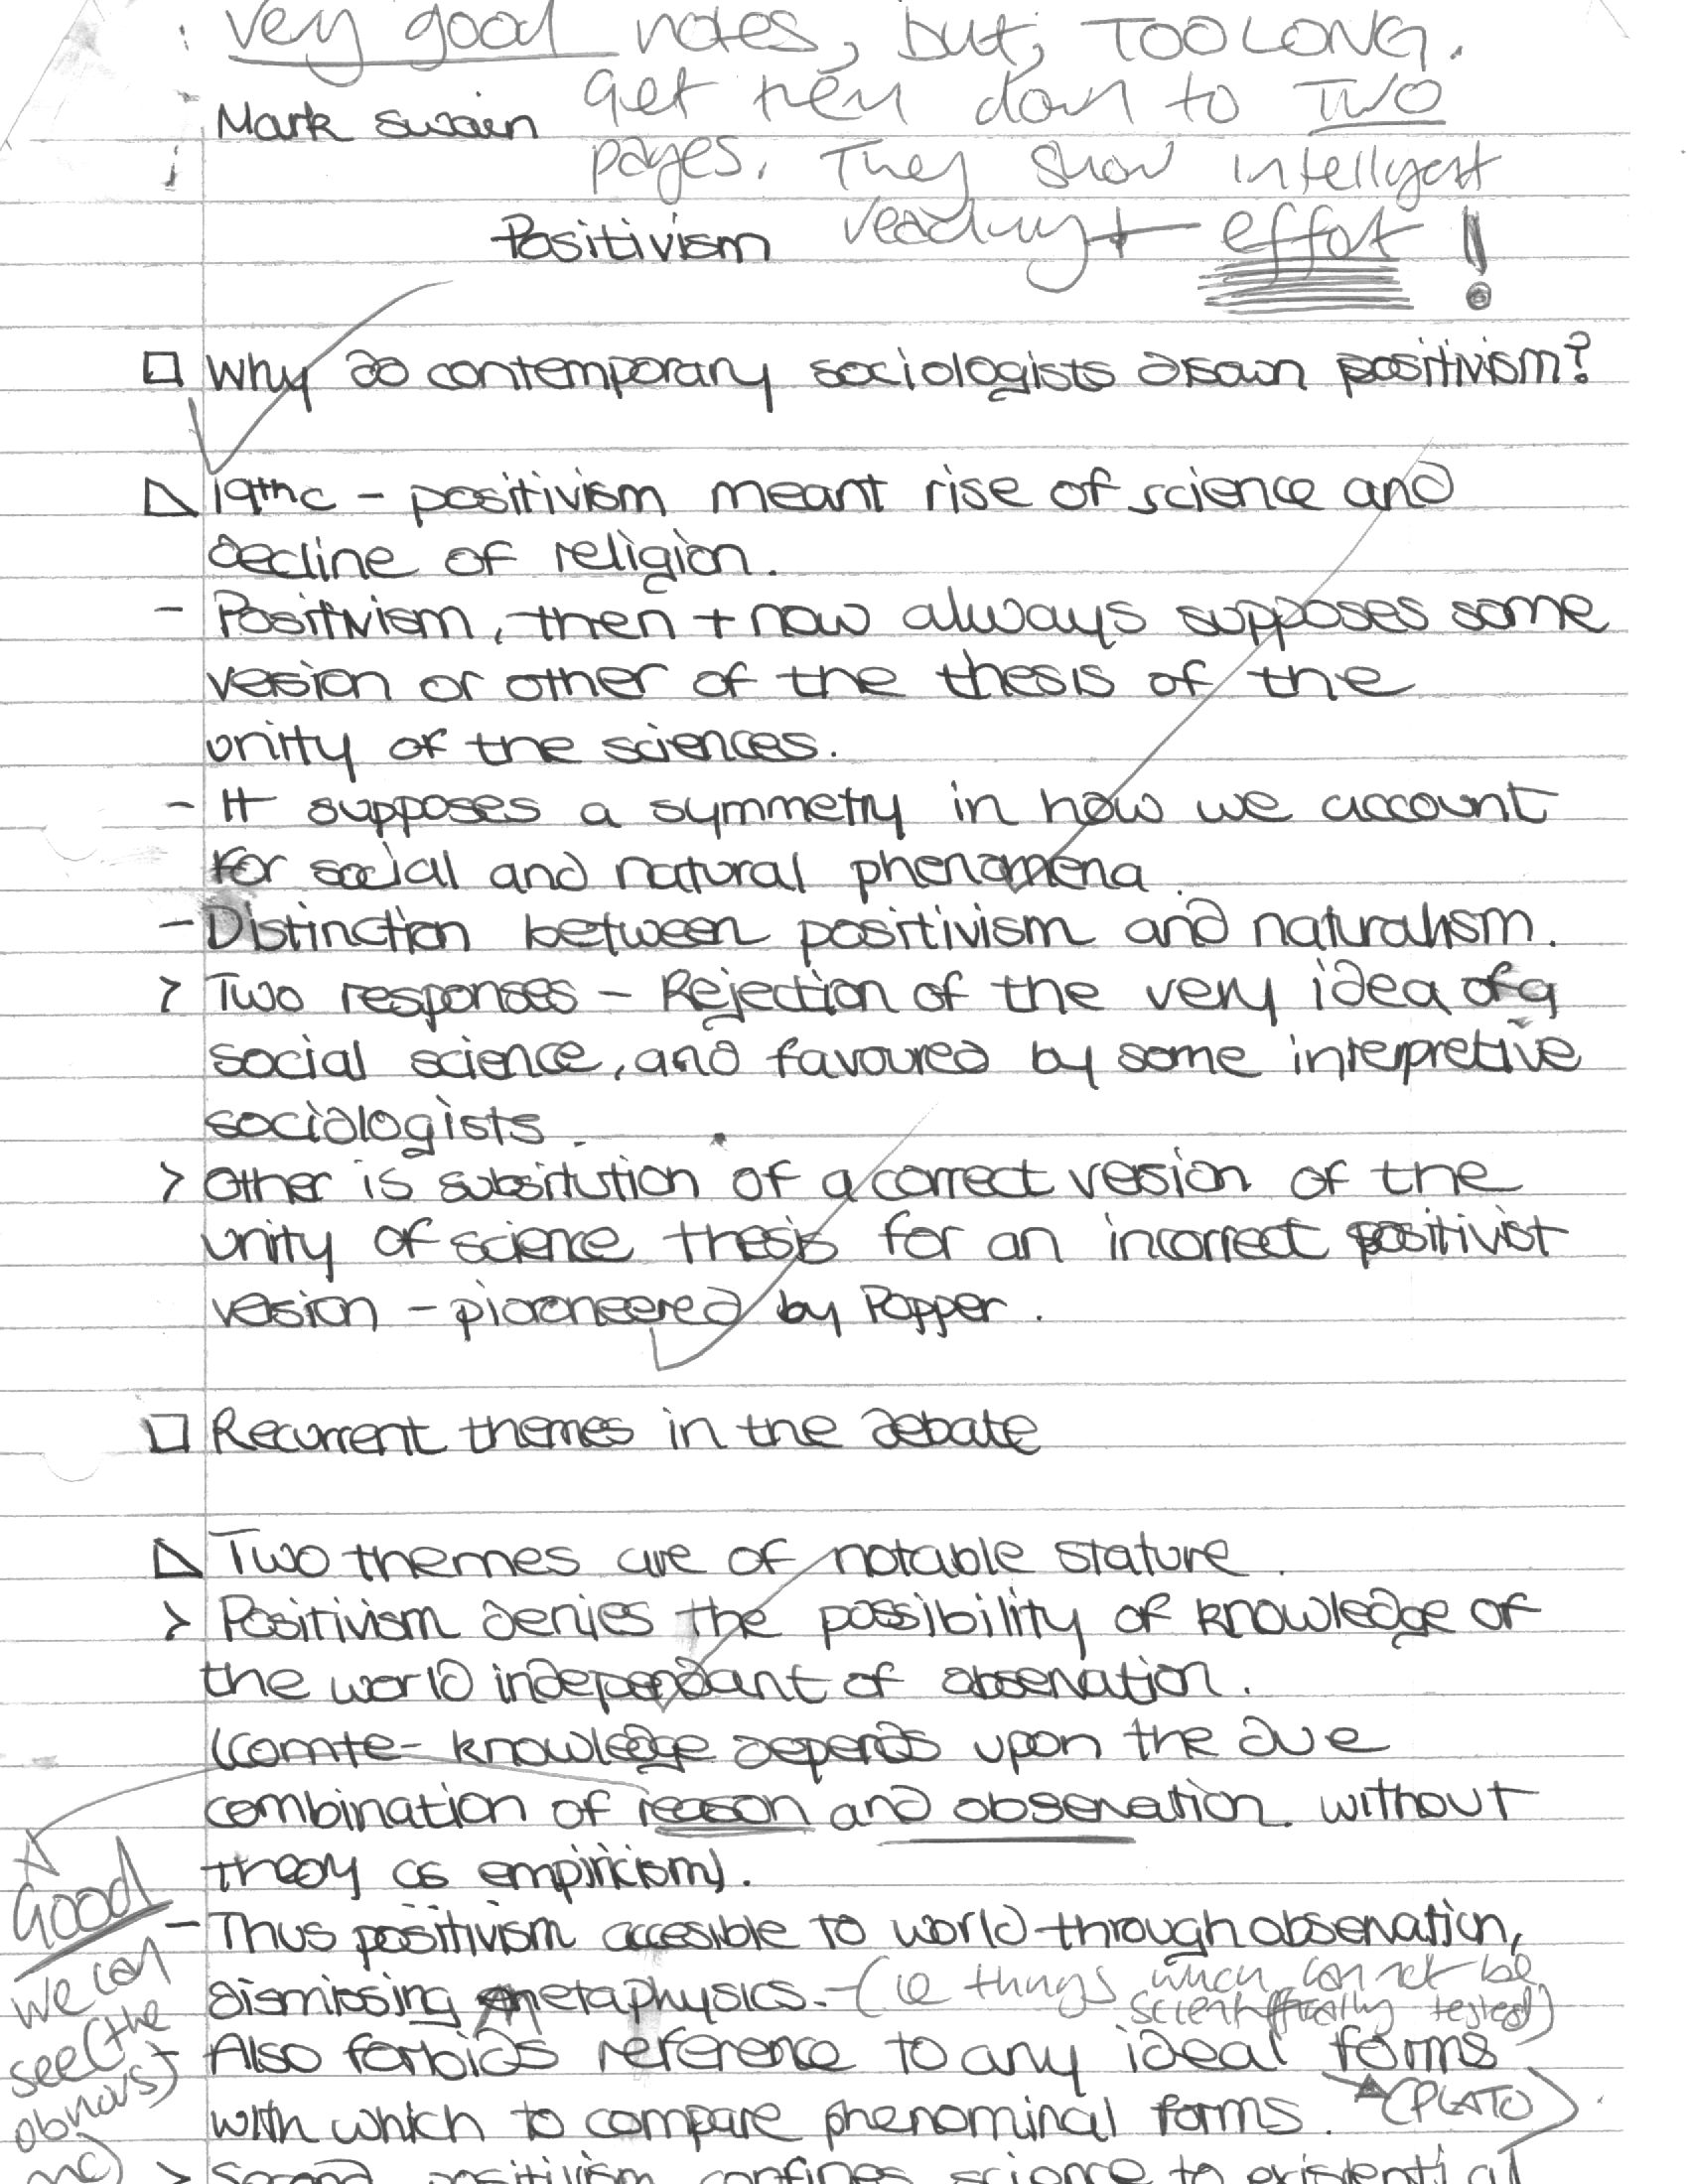 Very good notes, but, TOO LONG.
Get them down to TWO
Mark Swain
pages. They show intelligent
Positivism reading + effort!
Why do contemporary sociologists disown positivism?
19thc - positivism meant rise of science and
decline of religion.
- Positivism, then + now always supposes some
version or other of the thesis of the
unity of the sciences.
- It supposes a symmetry in how we account
for social and natural phenomena.
- Distinction between positivism and naturalism.
> Two responses - Rejection of the very idea of a
social science, and favoured by some interpretive
sociologists.
> Other is subsitution of a correct version of the
unity of science thesis for an incorrect positivist
version - pioroneered by Popper.
Recurrent themes in the debate
Two themes are of notable stature.
> Positivism denies the possibility of knowledge of
the world independant of observation.
(Comte - knowledge depends upon the due
combination of reason and observation. without
theory as empiricism).
- Thus positivism accesible to world through observation,
dismissing metaphysics. - (ie things which cannot be
scientifically tested)
- Also forbids reference to any ideal forms
with which to compare phenominal forms. (PLATO)
> Second, positivism confines science to existential
Good
we can
see (the
obvious)